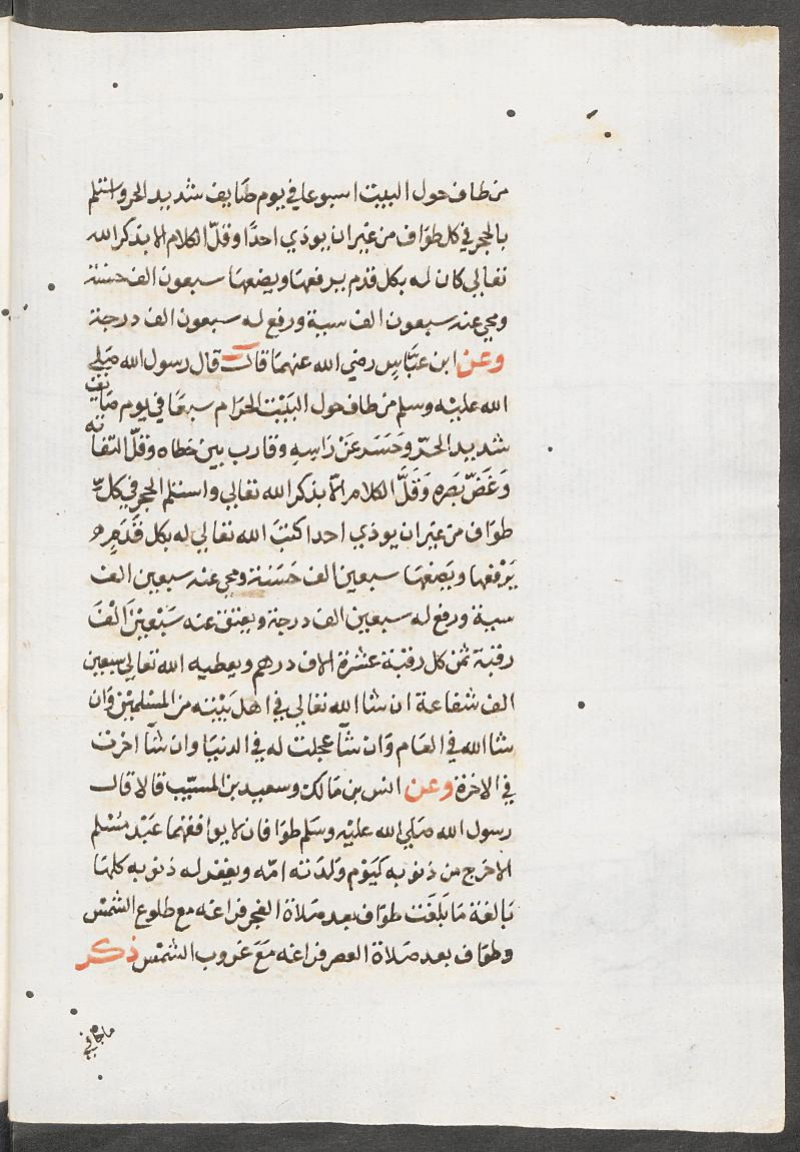 من طاف حول البيت اسبوعا في يوم صَايف شديد الحر واستلم
بالحجر في كل طوَاف من غير ان يوذي احدًا وقلّ الكلام الا بذكر الله
تعالي كان له بكل قدم يرفعهَا ويضعهَا سبعون الف حسنة
ومحي عنه سبعون الف سية ورفع له سبعون الف درجة
وعن ابن عبَّاسٍ رضي الله عنهمَا قال قال رسول الله صَلي
الله عليْه وسلم من طاف حول البَيْت الحرَام سبعًا في يوم صَايف
شديد الحرّ وحَسَر عَنْ رَاسِه وقارب بين خطاه وقلّ التفَاته
وَغَضّ بَصَره وَقَلَّ الكلام الّا بذكر الله تعالي واستلم الحجر في كل
طوَاف من غير ان يوذي احدا كتبَ الله تعالي له بكل قَدَمٍ
يَرْفعها ويَضعهَا سبعين الف حَسَنة ومحي عنه سبعين الف
سية ورفع له سبعين الف درجة ويعتق عنه سَبْعيْن الْفَ
رقبَة ثمن كل رقبَة عشرة الاف درهم ويعطيه الله تعالي سبعين
الف شفاعة ان شا الله تعالي في اهل بَيْته من المسْلميْن وَان
شا الله في العَام وَان شآ عجلت له في الدنيَا وان شآ اخرت
في الاخرة وعن انس بن مَالك وسعيد بن المسيّب قالا قال
رسول الله صَلي الله عليْه وسَلم طوَافان لا يوافقهما عَبْد مسْلم
الا خرج من ذنوبه كيَوْم ولدَته امّه ويغفر له ذنوبه كلهَا
بَالغة مَا بَلغَت طوَاف بعد صَلاة الفجر فراغه مع طلوع الشمْس
وطوَاف بعد صَلاة العصر فراغه مَعَ غروب الشمْس ذكر
ماجا في